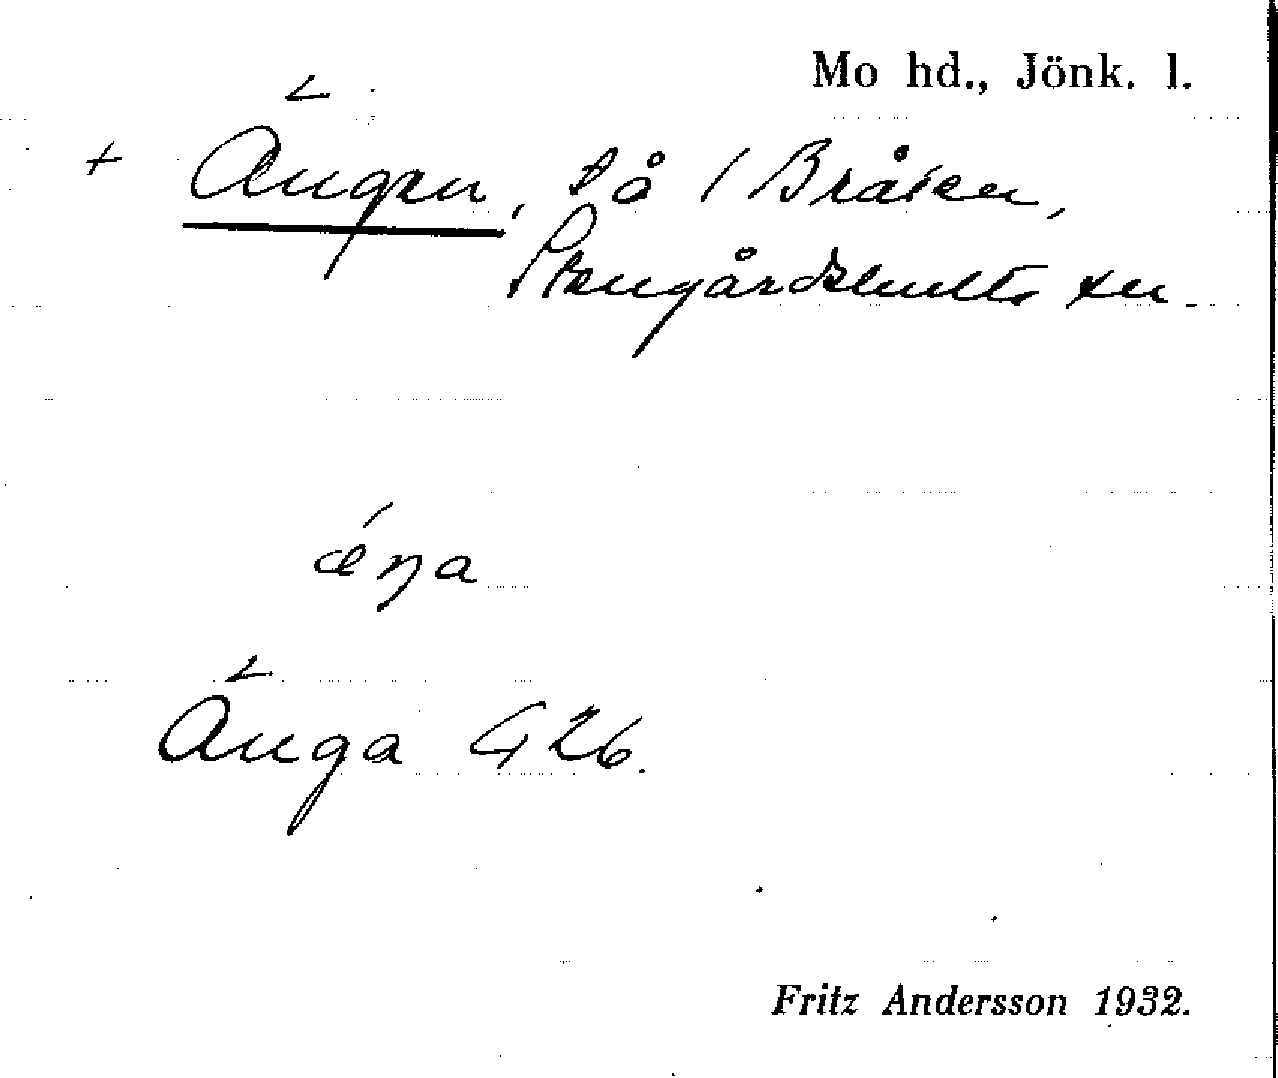 Mo hd., Jönk. l.
+ Ängen, så / Bråten,
Stengårdshults sn.
ǽŋa
Änga G 26.
Fritz Andersson 1932.